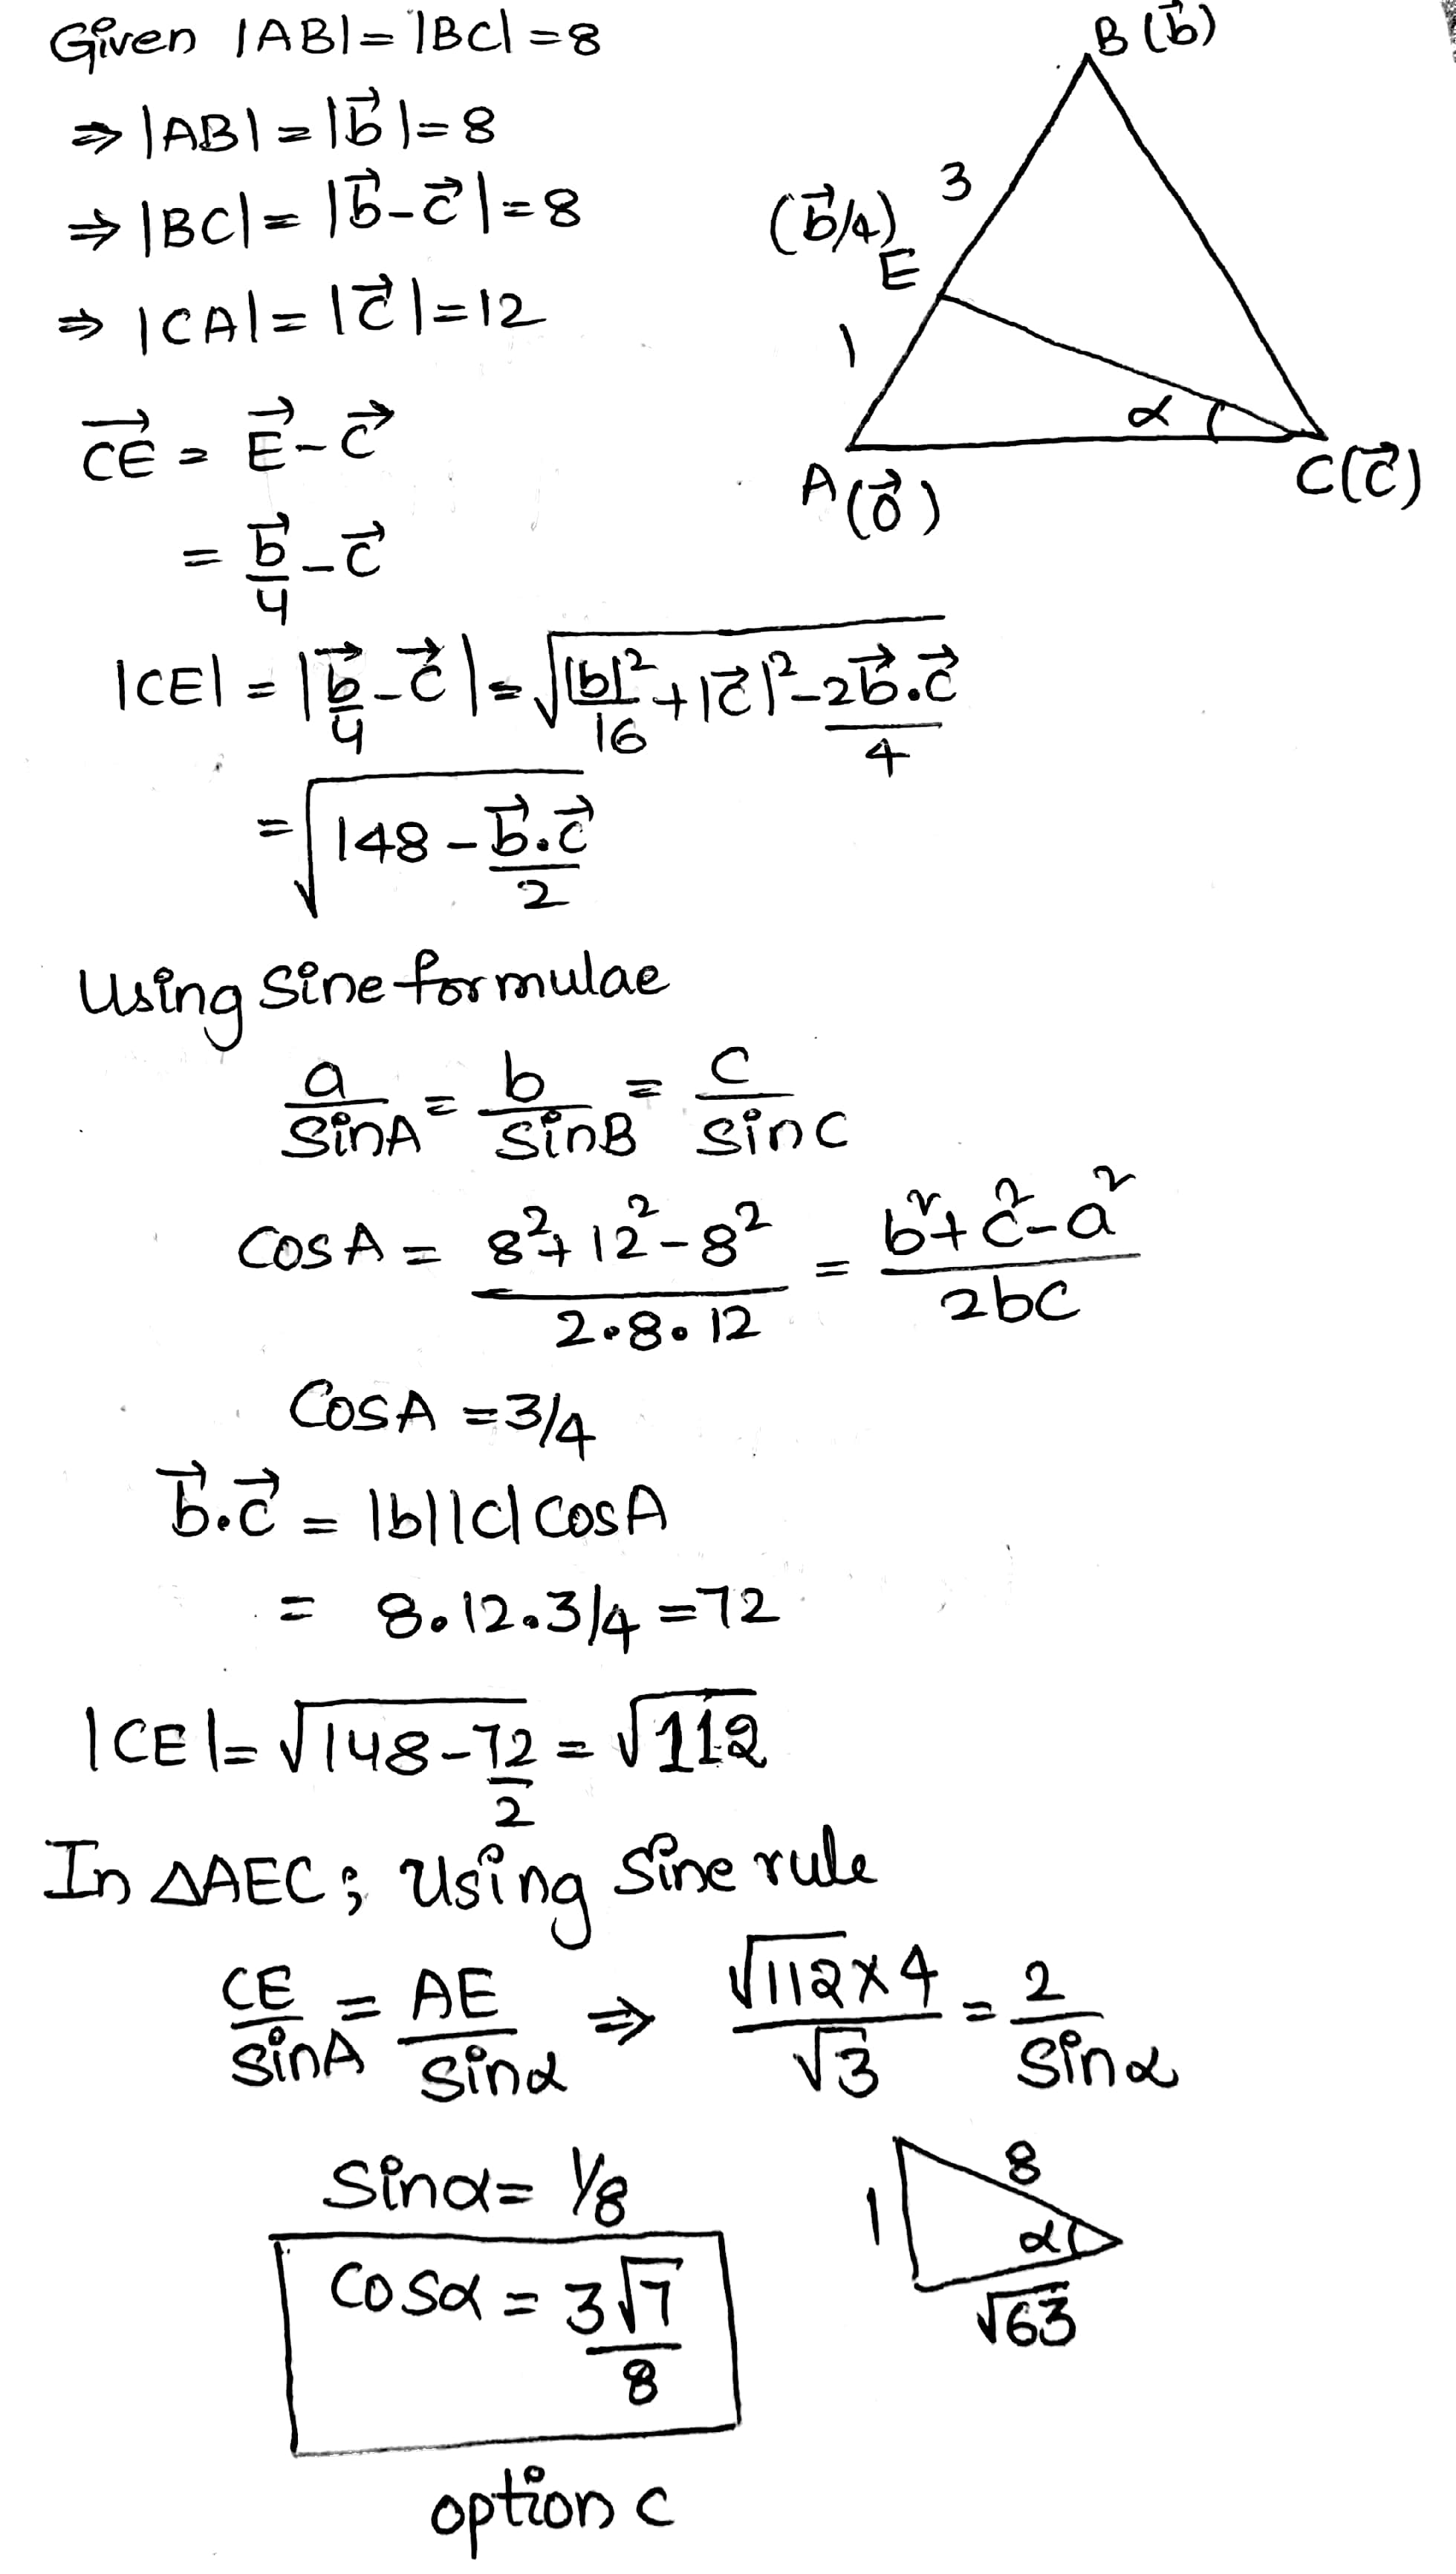 Given |AB| = |BC| = 8
⇒ |AB| = |b⃗| = 8
⇒ |BC| = |b⃗ - c⃗| = 8
⇒ |CA| = |c⃗| = 12
B (b⃗)
3
(b⃗/4)
E
1
α
A (0⃗)
C (c⃗)
CE⃗ = E⃗ - c⃗
= b⃗/4 - c⃗
|CE| = |b⃗/4 - c⃗| = √(|b|²/16 + |c⃗|² - 2b⃗.c⃗/4)
= √(148 - b⃗.c⃗/2)
Using Sine formulae
a/sinA = b/sinB = c/sinc
cosA = (8² + 12² - 8²)/(2.8.12) = (b² + c² - a²)/(2bc)
CosA = 3/4
b⃗.c⃗ = |b||c| cosA
= 8.12.3/4 = 72
|CE| = √(148 - 72/2) = √112
In △AEC; using Sine rule
CE/sinA = AE/sinα ⇒ (√112 × 4)/√3 = 2/sinα
Sinα = 1/8
8
1
α
√63
Cosα = 3√7/8
option c